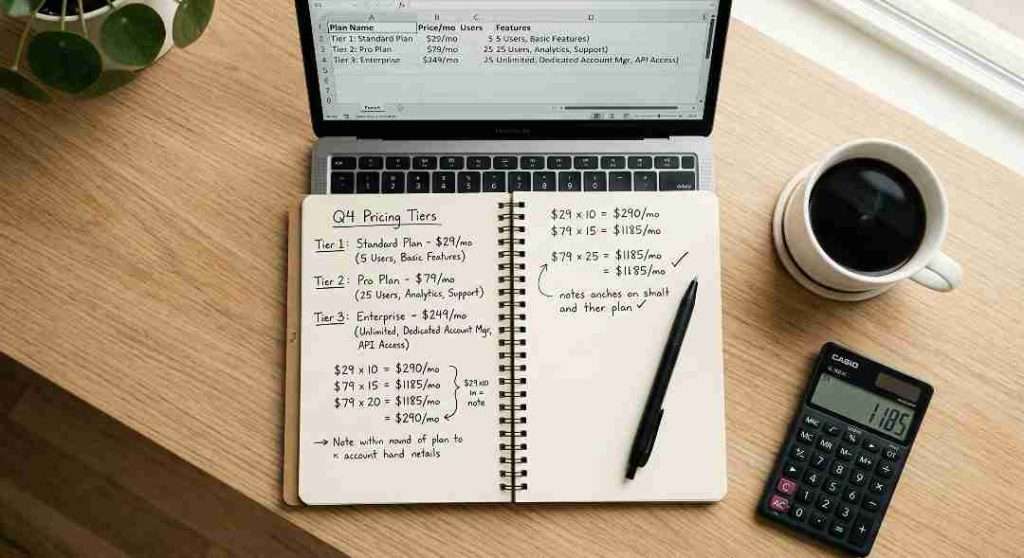 A B C D E
1 Plan Name Price/mo Users Features
2 Tier 1: Standard Plan $29/mo 5 5 Users, Basic Features)
3 Tier 2: Pro Plan $79/mo 25 25 Users, Analytics, Support)
4 Tier 3: Enterprise $249/mo 25 Unlimited, Dedicated Account Mgr, API Access)
Q4 Pricing Tiers
Tier 1: Standard Plan - $29/mo
(5 Users, Basic Features)
Tier 2: Pro Plan - $79/mo
(25 Users, Analytics, Support)
Tier 3: Enterprise - $249/mo
(Unlimited, Dedicated Account Mgr,
API Access)
$29 x 10 = $290/mo
$79 x 15 = $1185/mo
$79 x 20 = $1185/mo
= $290/mo
$29x10
in =
note
→ Note within nound of plan to
x account hand netails
$29 x 10 = $290/mo
$79 x 15 = $1185/mo
$79 x 25 = $1185/mo
= $1185/mo ✓
notes anches on smalt
and ther plan ✓
CASIO
1185
MC MR M- M+ ÷
7 8 9
4 5 6
C 1 2 3
AC 0